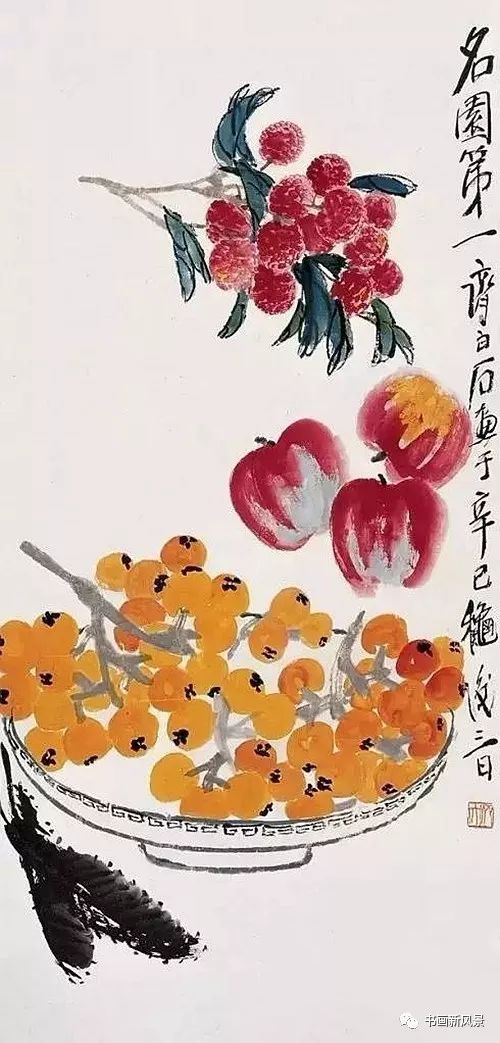 名園第一齊白石畫于辛巳龝後三日
书画新风景